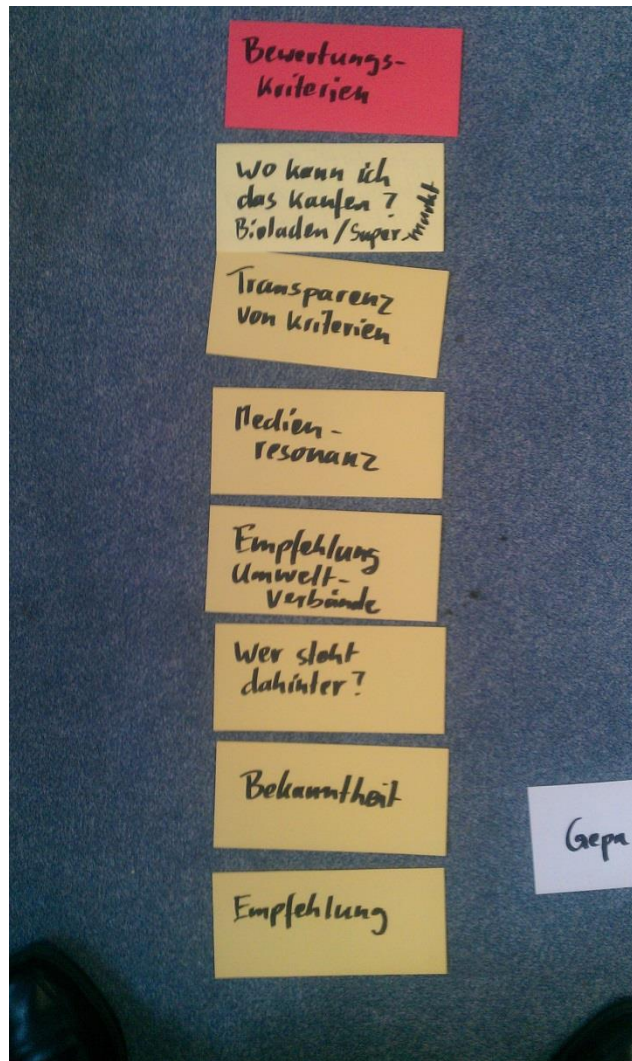 Bewertungs-
Kriterien
Wo kann ich
das kaufen ?
Bioladen / Super-markt
Transparenz
von Kriterien
Medien-
resonanz
Empfehlung
Umwelt-
Verbände
Wer steht
dahinter ?
Bekanntheit
Gepa
Empfehlung